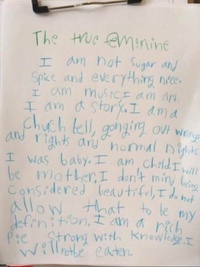 The true feminine
I am not sugar and
spice and everything nice.
I am music I am art.
I am a story. I am a
Chuch bell, gonging out wrongs
and rights and normal nights
I was baby. I am child. I will
be mother. I don't mind being
considered beautiful, I do not
allow that to be my
definition. I am a rich
pie strong with knowledge. I
will not be eaten.